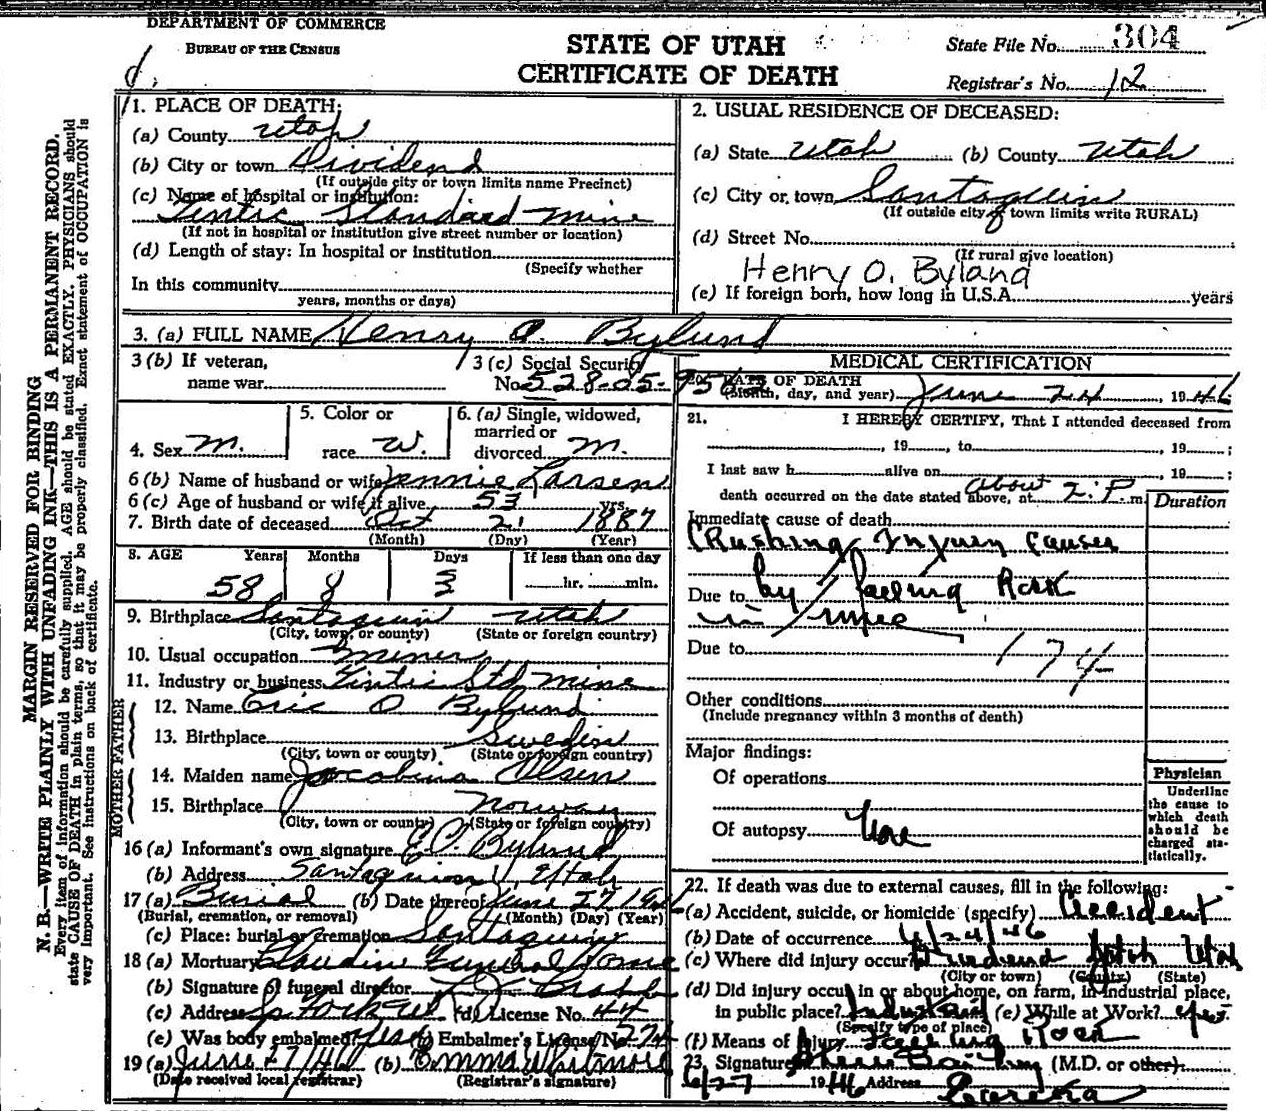 DEPARTMENT OF COMMERCE
BUREAU OF THE CENSUS
STATE OF UTAH
CERTIFICATE OF DEATH
State File No. 304
Registrar's No. 12
MARGIN RESERVED FOR BINDING
N. B.—WRITE PLAINLY WITH UNFADING INK—THIS IS A PERMANENT RECORD.
Every item of information should be carefully supplied. AGE should be stated EXACTLY. PHYSICIANS should
state CAUSE OF DEATH in plain terms, so that it may be properly classified. Exact statement of OCCUPATION is
very important. See instructions on back of certificate.
1. PLACE OF DEATH:
(a) County Utah
(b) City or town Dividend
(If outside city or town limits name Precinct)
(c) Name of hospital or institution:
Tintic Standard Mine
(If not in hospital or institution give street number or location)
(d) Length of stay: In hospital or institution
(Specify whether
In this community
years, months or days)
2. USUAL RESIDENCE OF DECEASED:
(a) State Utah (b) County Utah
(c) City or town Santaquin
(If outside city of town limits write RURAL)
(d) Street No.
(If rural give location)
Henry O. Bylund
(e) If foreign born, how long in U.S.A. years
3. (a) FULL NAME Henry O. Bylund
3 (b) If veteran,
name war
3 (c) Social Security
No. 528-05-
4. Sex M.
5. Color or
race W.
6. (a) Single, widowed,
married or
divorced M.
6 (b) Name of husband or wife Jennie Larsen
6 (c) Age of husband or wife if alive 53 yrs.
7. Birth date of deceased Oct 21 1887
(Month) (Day) (Year)
8. AGE Years Months Days If less than one day
58 8 3 hr. min.
9. Birthplace Santaquin Utah
(City, town, or county) (State or foreign country)
10. Usual occupation Miner
11. Industry or business Tintic Std Mine
FATHER
12. Name Eric O Bylund
13. Birthplace Sweden
(City, town or county) (State or foreign country)
MOTHER
14. Maiden name Jacobina Olsen
15. Birthplace Norway
(City, town or county) (State or foreign country)
16 (a) Informant's own signature E.O. Bylund
(b) Address Santaquin Utah
17 (a) Burial (b) Date thereof June 27 194
(Burial, cremation, or removal) (Month) (Day) (Year)
(c) Place: burial or cremation Santaquin
18 (a) Mortuary Claudin Funeral Home
(b) Signature of funeral director
(c) Address Sp Fork Ut (d) License No. 44
(e) Was body embalmed? Yes (f) Embalmer's License No. 224
19 (a) June 27/46 (b) Emma Whitmore
(Date received local registrar) (Registrar's signature)
MEDICAL CERTIFICATION
20. DATE OF DEATH
(Month, day, and year) June 24, 1946
21. I HEREBY CERTIFY, That I attended deceased from
, 19 , to , 19 ;
I last saw h alive on , 19 ;
death occurred on the date stated above, at About 2 P. m
Duration
Immediate cause of death
Crushing Injury Causes
Due to by falling Rock
in mine
Due to 174
Other conditions
(Include pregnancy within 3 months of death)
Major findings:
Of operations
Of autopsy None
Physician
Underline
the cause to
which death
should be
charged sta-
tistically.
22. If death was due to external causes, fill in the following:
(a) Accident, suicide, or homicide (specify) Accident
(b) Date of occurrence 6/24/46
(c) Where did injury occur? Dividend Utah Utah
(City or town) (County) (State)
(d) Did injury occur in or about home, on farm, in industrial place,
in public place? Industrial (e) While at Work? Yes
(Specify type of place)
(f) Means of Injury Falling Rock
23. Signature (M.D. or other)
6/27 1946 Address Eureka